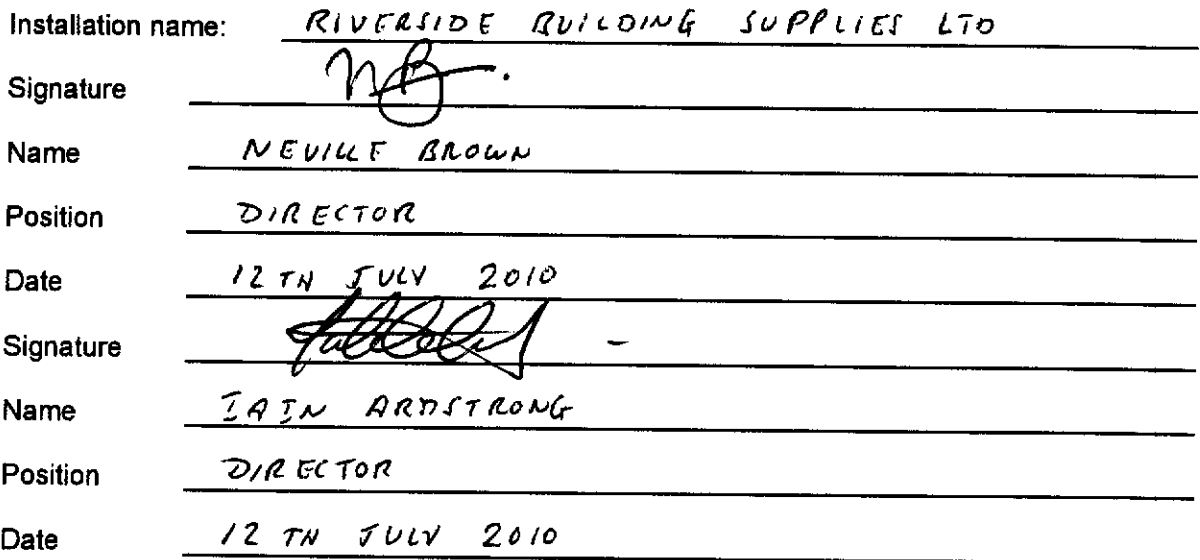 Installation name: RIVERSIDE BUILDING SUPPLIES LTD
Signature
Name NEVILLE BROWN
Position DIRECTOR
Date 12 TH JULY 2010
Signature
Name IAIN ARMSTRONG
Position DIRECTOR
Date 12 TH JULY 2010